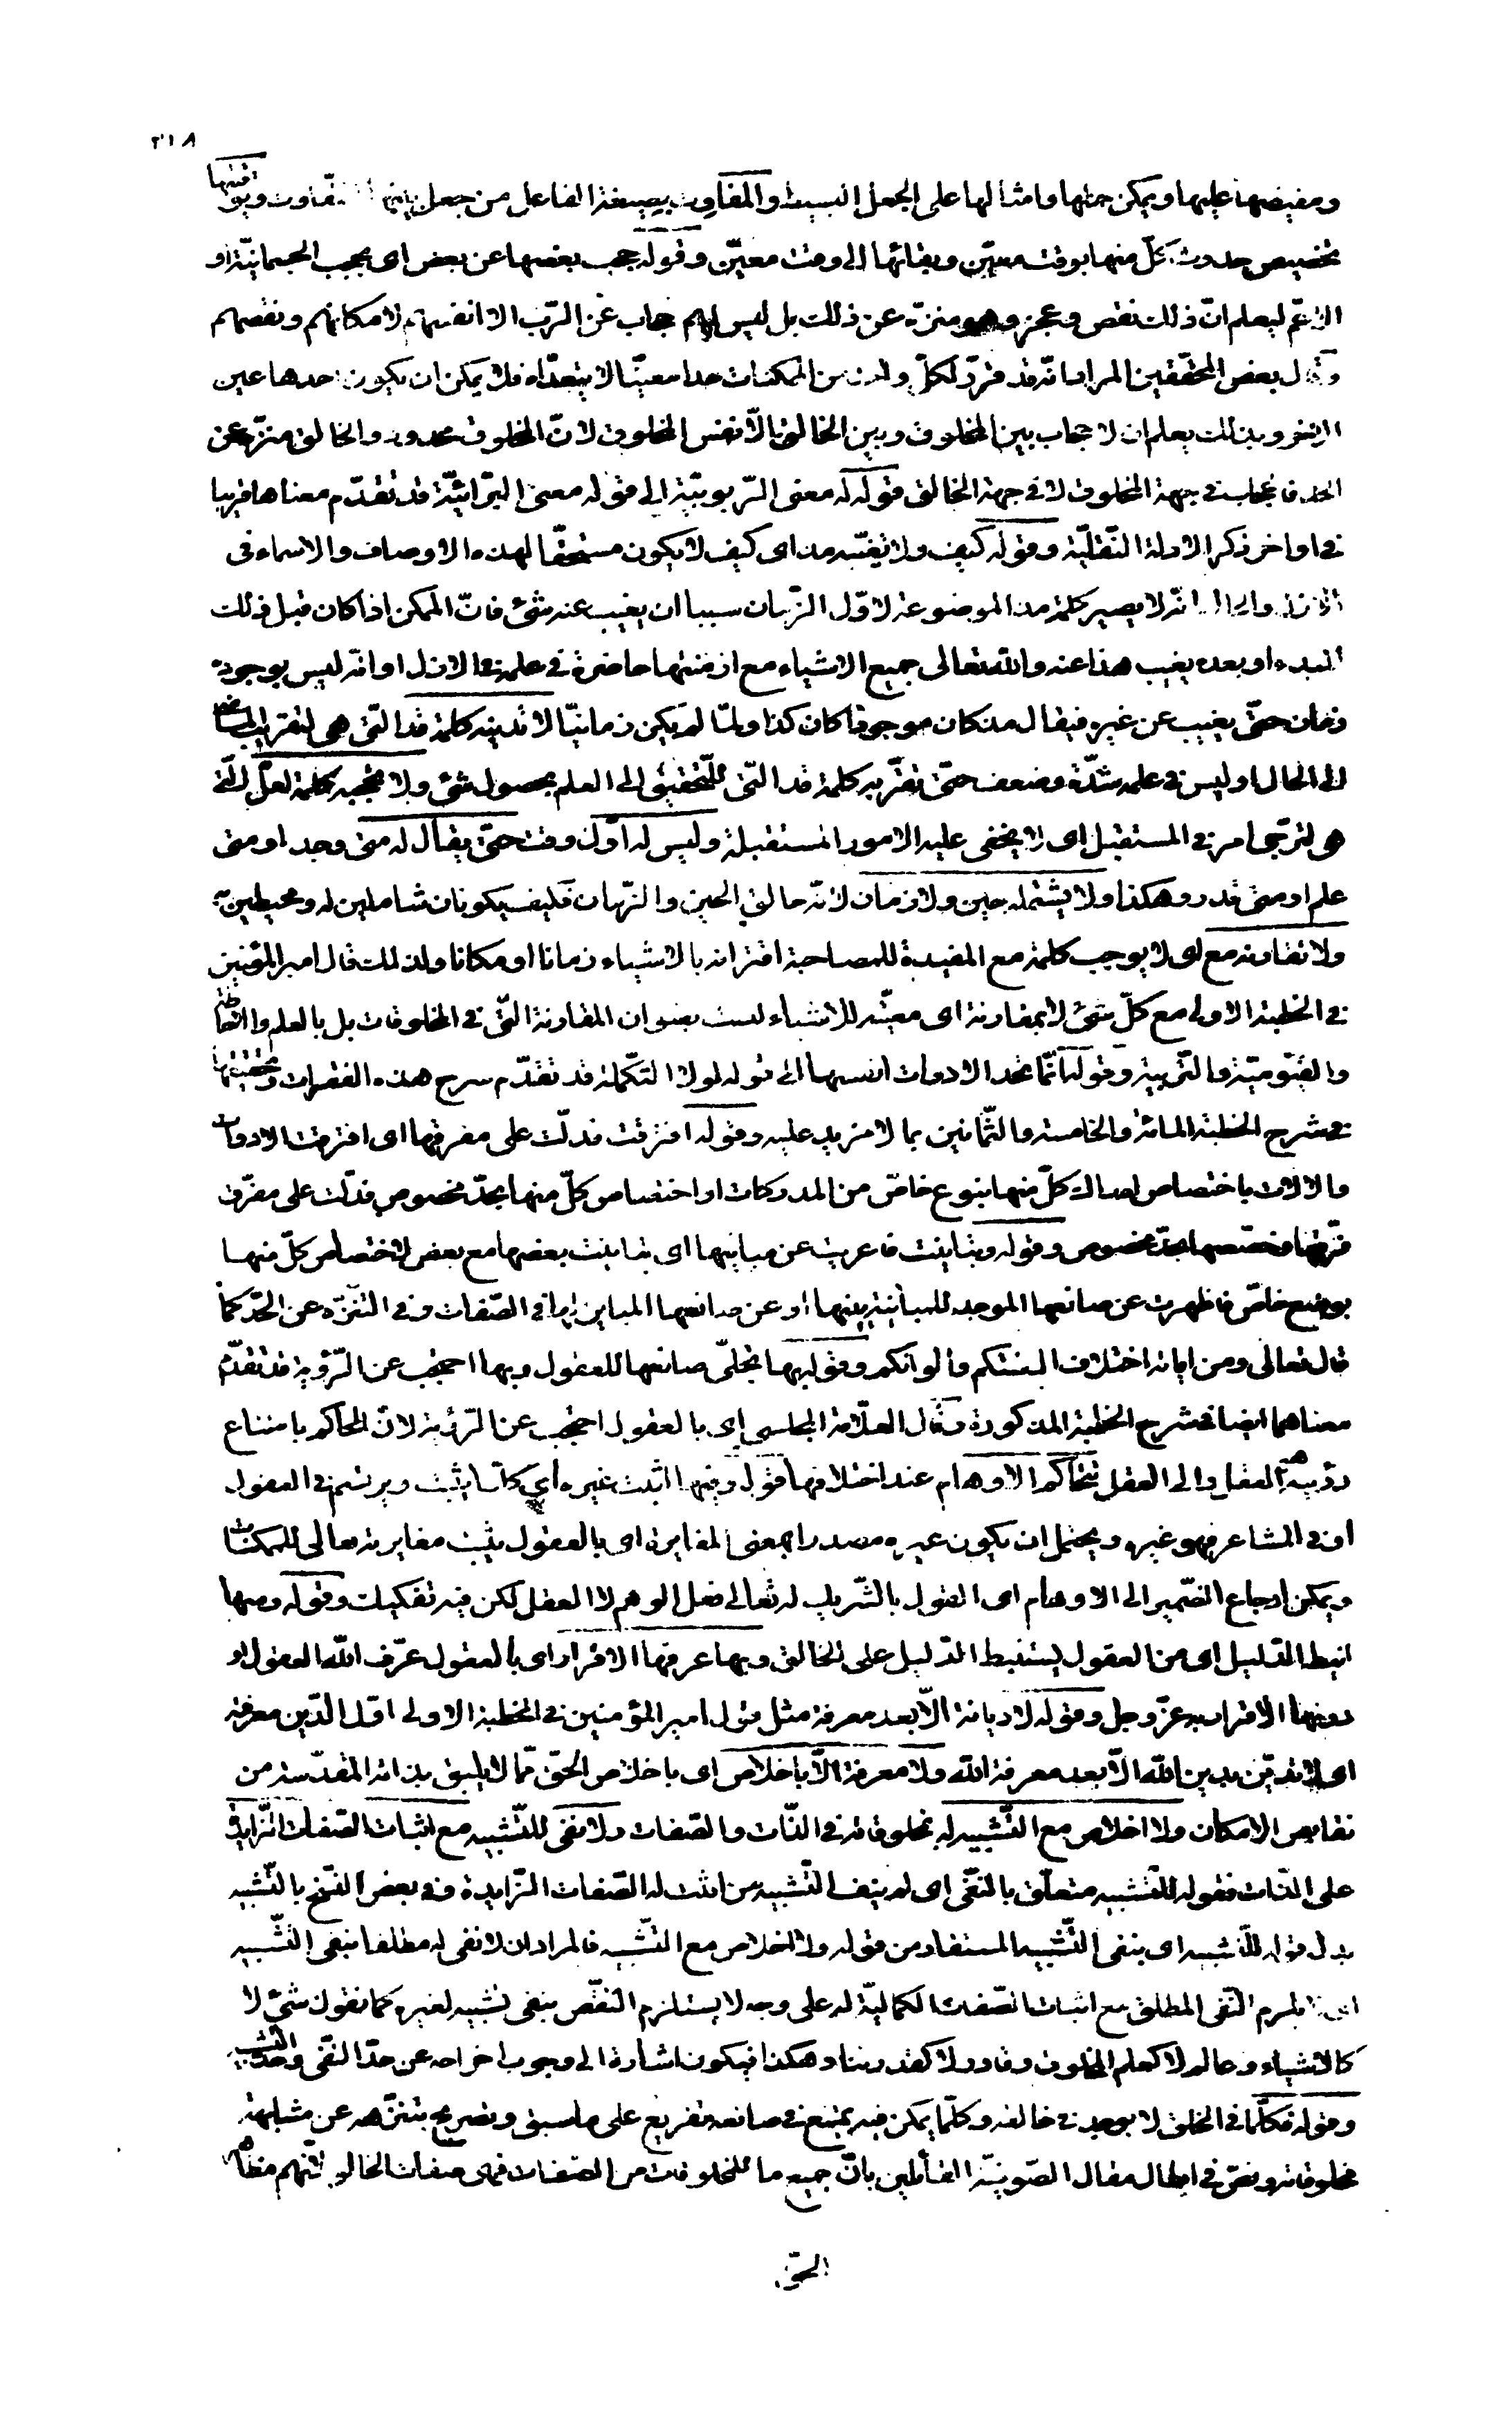 ٢١٨
ومفيضها عليها ويمكن حملها وامثالها على الجعل البسيط والمفاوت بصيغة الفاعل من جعل بينها التفاوت وتوقيتها
تخصيص حدوث كلّ منها بوقت معيّن وبقائها الى وقت معيّن وقوله حجب بعضها عن بعض اى بحجب الجسمانيّة او
الاعمّ ليعلم انّ ذلك نقص وعجز وهو منزّه عن ذلك بل ليس لهم حجاب عن الرّب الا انفسهم لامكانهم ونقصهم
وقال بعض المحقّقين المراد انّه قد قرّر لكلّ واحد من الممكنات حدا معيّنا لا يتعدّاه فلا يمكن ان يكون احدها عين
الاخر وبذلك يعلم ان لا حجاب بين المخلوق وبين الخالق الّا نفس المخلوق لانّ المخلوق محدود والخالق منزّه عن
الحد فالحجاب فى جهة المخلوق لا فى جهة الخالق قوله له معنى الرّبوبيّة الى قوله معنى البرائيّة قد تقدّم معناها قريبا
فى اواخر ذكر الادلة النّقليّة وقوله كيف ولا تغيّبه مذ اى كيف لا يكون مستحقّا لهذه الاوصاف والاسماء فى
الازل والحال انّه لا يصير كلمة مذ الموضوعة لاوّل الزّمان سببا ان يغيب عنه شئ فانّ الممكن اذا كان قبل ذلك
المبدء او بعده يغيب هذا عنه والله تعالى جميع الاشياء مع ازمنتها حاضرة فى علمه فى الازل او انّه ليس لوجوده
زمان حتّى يغيب عن غيره فيقال مذ كان موجودا كان كذا ولمّا لم يكن زمانيّا لا تدنيه كلمة قد الّتى هى لتقريب الماضى
الى الحال او ليس فى علمه شدّة وضعف حتّى تقرّبه كلمة قد الّتى للتّحقيق الى العلم بحصول شئ ولا تحجبه كلمة لعلّ الّتى
هى لترجّى امر فى المستقبل اى لا يخفى عليه الامور المستقبلة وليس له اوّل وقت حتّى يقال له متى وجد او متى
علم او متى قدر وهكذا ولا يشتمله حين ولا زمان لانّه خالق الحين والزّمان فكيف يكونان شاملين له ومحيطين به
ولا تقارنه مع اى لا يوجب كلمة مع المفيدة للمصاحبة اقترانه بالاشياء زمانا او مكانا ولذلك قال امير المؤمنين
فى الخطبة الاولى مع كلّ شئ لا بمقارنة اى معيّته للاشياء ليست بعنوان المقارنة الّتى فى المخلوقات بل بالعلم والاحاطة
والقيّوميّة والتّربية وقوله انّما تحد الادوات انفسها الى قوله لولا التّكملة قد تقدّم شرح هذه الفقرات وتحقيقها
فى شرح الخطبة المائة والخامسة والثّمانين بما لا مزيد عليه وقوله افترقت فدلّت على مفرقها اى افترقت الادوات
والالات باختصاص ادراك كلّ منها بنوع خاصّ من المدركات او اختصاص كلّ منها بحدّ مخصوص فدلّت على مفرّق
فرّقها وخصّصها بحدّ مخصوص وقوله وتباينت فاعربت عن مباينها اى تباينت بعضها مع بعض لاختصاص كلّ منها
بوضع خاصّ فاظهرت عن صانعها الموجد للمباينة بينها او عن صانعها المباين لها فى الصّفات وفى التنزّه عن الحدّ كما
قال تعالى ومن اياته اختلاف السنتكم والوانكم وقوله بها تجلّى صانعها للعقول وبها احتجب عن الرّؤية قد تقدّم
معناهما ايضا فى شرح الخطبة المذكورة وقال العلّامة المجلسى اى بالعقول احتجب عن الرّؤية لانّ الحاكم بامتناع
رؤيته هو العقل والى العقل تتحاكم الاوهام عند اختلافها قوله وفيها اثبت غيره اى كلّما يثبت ويرتسم فى العقول
او فى المشاعر فهو غيره ويحتمل ان يكون غيره مصدرا بمعنى المغايرة اى بالعقول يثبت مغايرته تعالى للممكنات
ويمكن ارجاع الضّمير الى الاوهام اى القول بالشّريك له تعالى فعل الوهم لا العقل لكن فيه تفكيك وقوله ومنها
انيط الدّليل اى من العقول يستنبط الدّليل على الخالق وبها عرفها الاقرار اى بالعقول عرّف الله العقول او
ذويها الاقرار به عزّ وجل وقوله لا ديانة الّا بعد معرفة مثل قول امير المؤمنين فى الخطبة الاولى اوّل الدّين معرفته
اى لا تديّن بدين الله الّا بعد معرفة الله ولا معرفة الّا باخلاص اى باخلاص الحقّ ممّا لا يليق بذاته المقدّسة من
نقايص الامكان ولا اخلاص مع التّشبيه له بمخلوقاته فى الذّات والصّفات ولا نفى للتّشبيه مع اثبات الصّفات الزّايدة
على الذّات فقوله للتّشبيه متعلّق بالنّفى اى لم ينف التّشبيه من اثبت له الصّفات الزّايدة وفى بعض النّسخ بالتّشبيه
بدل قوله للتّشبيه اى بنفى التّشبيه المستفاد من قوله ولا اخلاص مع التّشبيه فالمراد ان لا نفى له مطلقا بنفى التّشبيه
يلزم النّفى المطلق مع اثبات الصّفات الكماليّة له على وجه لا يستلزم النّقص بنفى تشبيه لغيره كما نقول شئ لا
كالاشياء وعالم لا كعلم المخلوق وقادر لا كقدرتنا وهكذا فيكون اشارة الى وجوب اخراجه عن حدّ النّفى وحدّ التّشبيه
وقوله فكلّما فى الخلق لا يوجد فى خالقه وكلّما يمكن فيه يمتنع فى صانعه تفريع على ما سبق وتصريح بتنزّهه عن مشابهة
مخلوقاته ونصّ فى ابطال مقال الصّوفيّة القائلين بانّ جميع ما للمخلوقات من الصّفات فهى صفات الخالق لانّهم
الحقّ